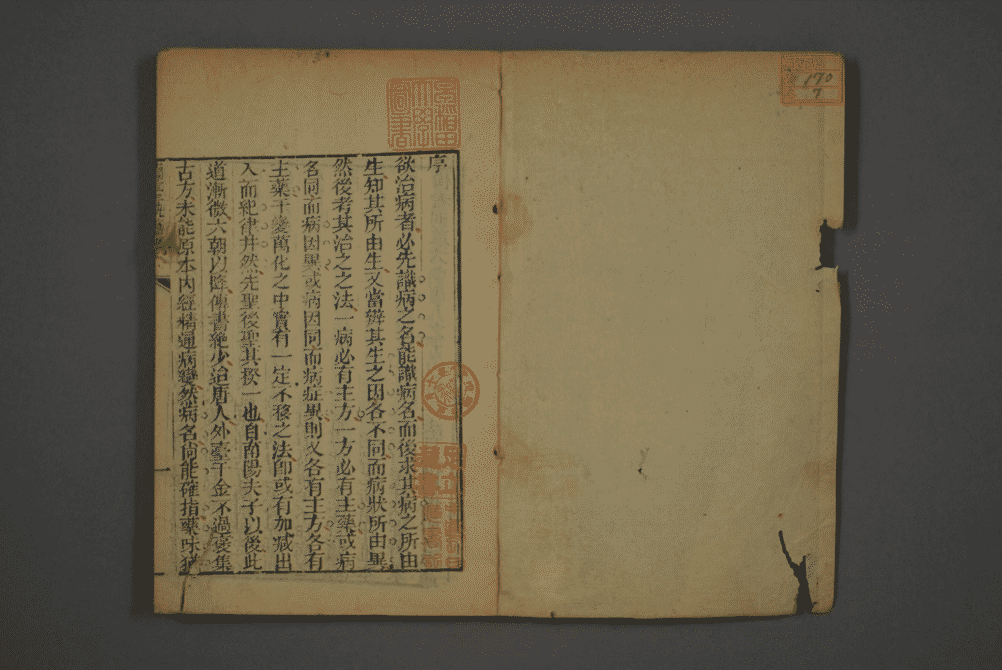 序
欲治病者必先識病之名能識病名而後求其病之所由
生知其所由生又當辨其生之因各不同而病狀所由異
然後考其治之之法一病必有主方一方必有主藥或病
名同而病因異或病因同而病症異則又各有主方各有
主藥千變萬化之中實有一定不移之法即或有加減出
入而紀律井然先聖後聖其揆一也自南陽夫子以後此
道漸微六朝以降傳書絶少迨唐人外臺千金不過裒集
古方未能原本內經精通病變然病名尚能確指藥味猶
170
7